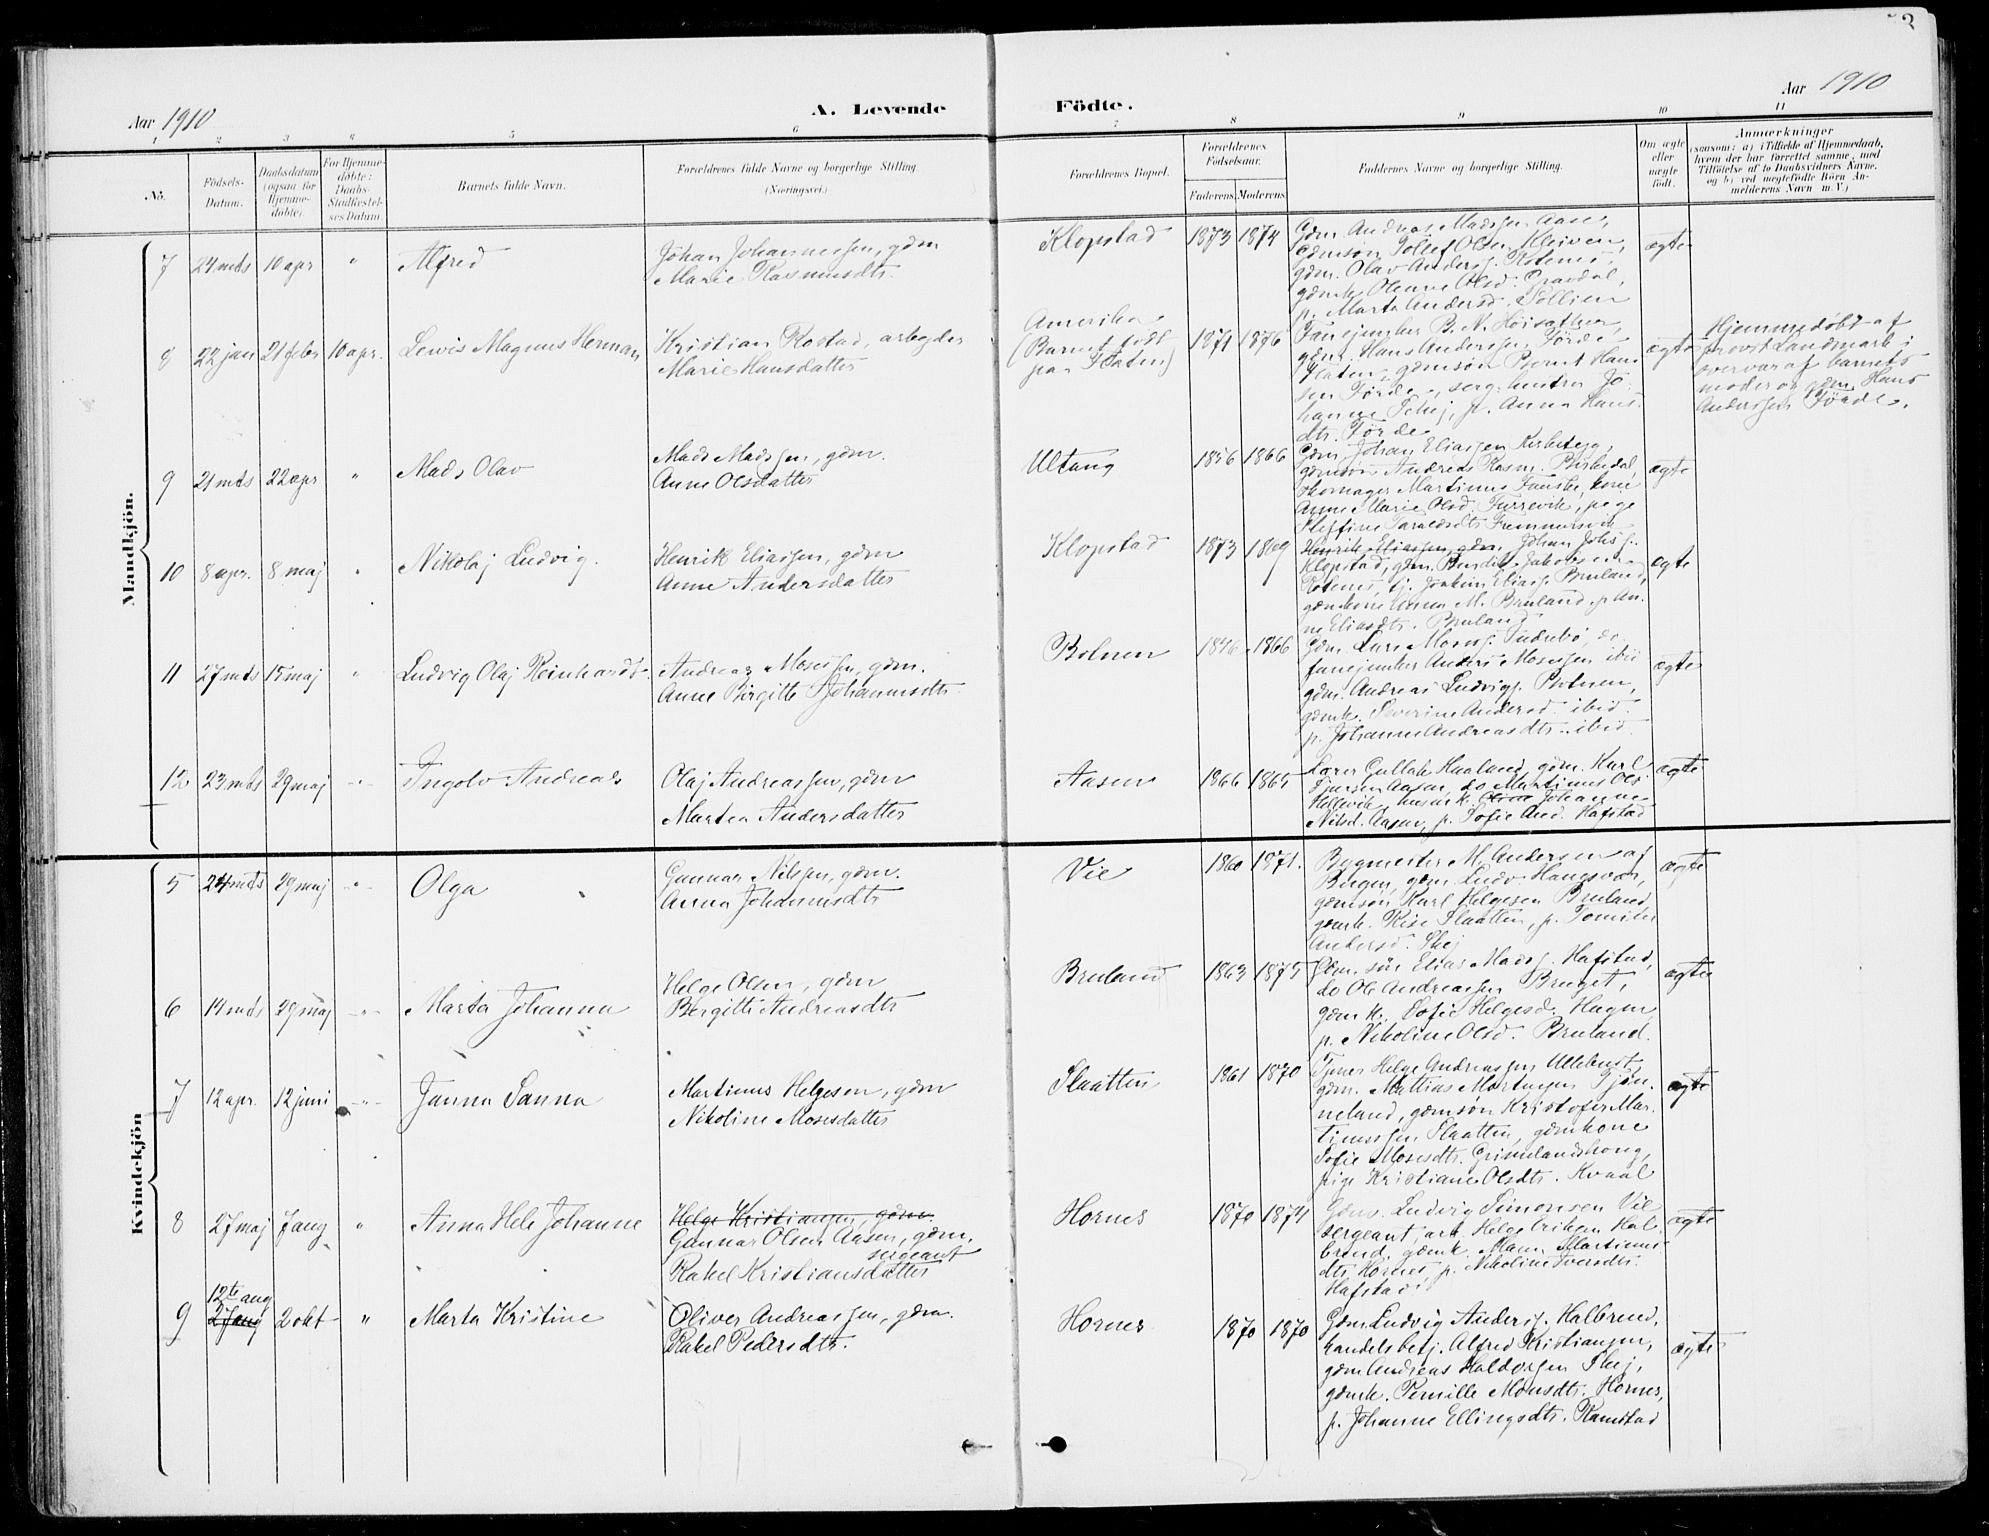 3
Aar 1910
A. Levende
Födte.
Aar 1910
1 2 3 4 5 6 7 8 9 10 11
No.
Födsels-
Datum.
Daabsdatum
(ogsaa for
Hjemme-
döbte).
For Hjemme-
döbte:
Daabs-
Stadfæstel-
ses Datum.
Barnets fulde Navn.
Forældrenes fulde Navne og borgerlige Stilling
(Næringsvei.)
Forældrenes Bopæl.
Forældrenes
Födselsaar.
Faderens. Moderens.
Faddernes Navne og borgerlige Stilling.
Om ægte
eller
uægte
födt.
Anmærkninger
(saasom: a) i Tilfælde af Hjemmedaab,
hvem der har forrettet samme, med
Tilföielse af to Daabsvidners Navne.
og b) ved uægtefödte Börn An-
melderens Navn m. V.)
Mandkjön.
7 24 mts 10 apr " Alfred
Johan Johannessen, gdm
Marie Rasmusdtr.
Klopstad 1873 1874
Gdm. Andreas Madssen Aase,
gdmsøn Tollef Olsen Kleiven,
gdm. Olav Anderss. Kotenes,
gdmk. Olenne Olsd. Dravdal,
p. Marta Andersd. Sollien
ægte
8 22 jan 21 febr 10 apr. Lewis Magnus Herman
Kristian Rostad, arbeyder
Marie Hansdatter
Amerika
(Barnet født
paa Flaten)
1871 1876
Fanejunker B. N. Høisæther,
gdm. Hans Anderssen Førde
Flaten, gdmsøn Bernt Han-
sen Førde, serg. hustru Jo-
hanne Schej, p. Anna Hans-
dtr. Førde
ægte
Hjemmedøbt af
provst Landmark i
overvær af barnets
moder og gdm. Hans
Anderssen Førde.
9 21 mts 22 apr " Mads Olav
Mads Madssen, gdm.
Anne Olsdatter
Ultang 1856 1866
Gdm. Johan Eliassen Kirketeig,
gdmsøn Andreas Rasm. Birkedal,
skomager Martinus Fauske, kone
Anne Marie Olsd. Furrevik, pige
Steffine Taraldsdtr. Fremmersvik
ægte
10 8 apr. 8 maj " Nikolaj Ludvig.
Henrik Eliassen, gdm
Anne Andersdatter
Klopstad 1873 1869
Henrik Eliassen, gdm. Johan Johs s.
Klopstad, gdm. Bendik Jakobsen
Kotenes, tj. Joakim Eliass. Bruland,
gdmkone Anna M. Bruland, p. An-
ne Eliasdtr. Bruland
ægte
11 27 mts 15 maj " Ludvig Olaj Reinhardt
Andreas Mosessen, gdm.
Anne Birgitte Johannesdtr.
Bolnen 1866
Gdm. Lars Moses s. Indrebø, do
fanejunker Anders Mosessen ibid
gdm. Andreas Ludvigs. Bolnen,
gdmk. Severine Andersd. ibid.
p. Johanne Andreasdtr. ibid.
ægte
12 23 mts 29 maj " Ingolv Andreas
Olaj Andreassen, gdm
Marten Andersdatter
Aasen 1866 1865
Lærer Gullak Haaland, gdm. Karl
Iversen Aasen, do Martinus Ols.
Hellevik, husm.k. Oline Johanne
Nilsd. Aasen, p. Sofie And. Hafstad
ægte
Kvindekjön
5 24 mts 29 maj " Olga
Gunnar Nilssen, gdm.
Anna Johannesdtr
Vie 1860 1871.
Bygmester M. Andersen af
Bergen, gdm. Ludv. Hangsvær,
gdmsøn Karl Helgesen Bruland,
gdmk. Rise Slaatten, p. Tomine
Andersd. Skej
ægte
6 14 mts 29 maj " Marta Johanna
Helge Olsen, gdm
Bergitte Andreasdtr
Bruland 1863 1875
Gdm. søn Elias Mads s. Hafstad,
do Ole Andreassen Bruget,
gdm k. Sofie Helgesd. Hagen
p. Nikoline Olsd. Bruland.
ægte
7 12 apr. 12 juni " Janna Sanna
Martinus Helgesen, gdm
Nikoline Mosesdatter
Slaatten 1861 1870
Tjener Helge Andreassen Ullebust,
gdm. Mathias Martinsen Tjøn-
neland, gdmsøn Kristofer Mar-
tinussen Slaatten, gdmkone
Sofie Mosesdtr. Grimelandshaug,
pige Kristiane Olsdtr. Kvaal
ægte
8 27 maj 7 aug " Anna Hele Johanne
Helge Kristiansen, gdm.
Gunnar Olsen Aasen, gdm.
sergeant
Rakel Kristiansdatter
Hornes 1870 1874
Gdms. Ludvig Simonsen Vie
sergeant, arb. Helge Eriksen Hal-
brend, gdmk. Maren Martinus-
dtr. Hornes, p. Nikoline Iversdtr.
Hafstad
ægte
12te aug
9 27 aug 2 okt " Marta Kristine
Oliver Andreassen, gdm.
Rakel Pedersdtr.
Hornes 1870 1870
Gdm Ludvig Anders s. Halbrend,
handelsbetj. Alfred Kristiansen,
gdm Andreas Haldorssen Skej,
gdmk. Pernille Monsdtr. Hornes,
p. Johanne Ellingsdtr. Ramstad
ægte